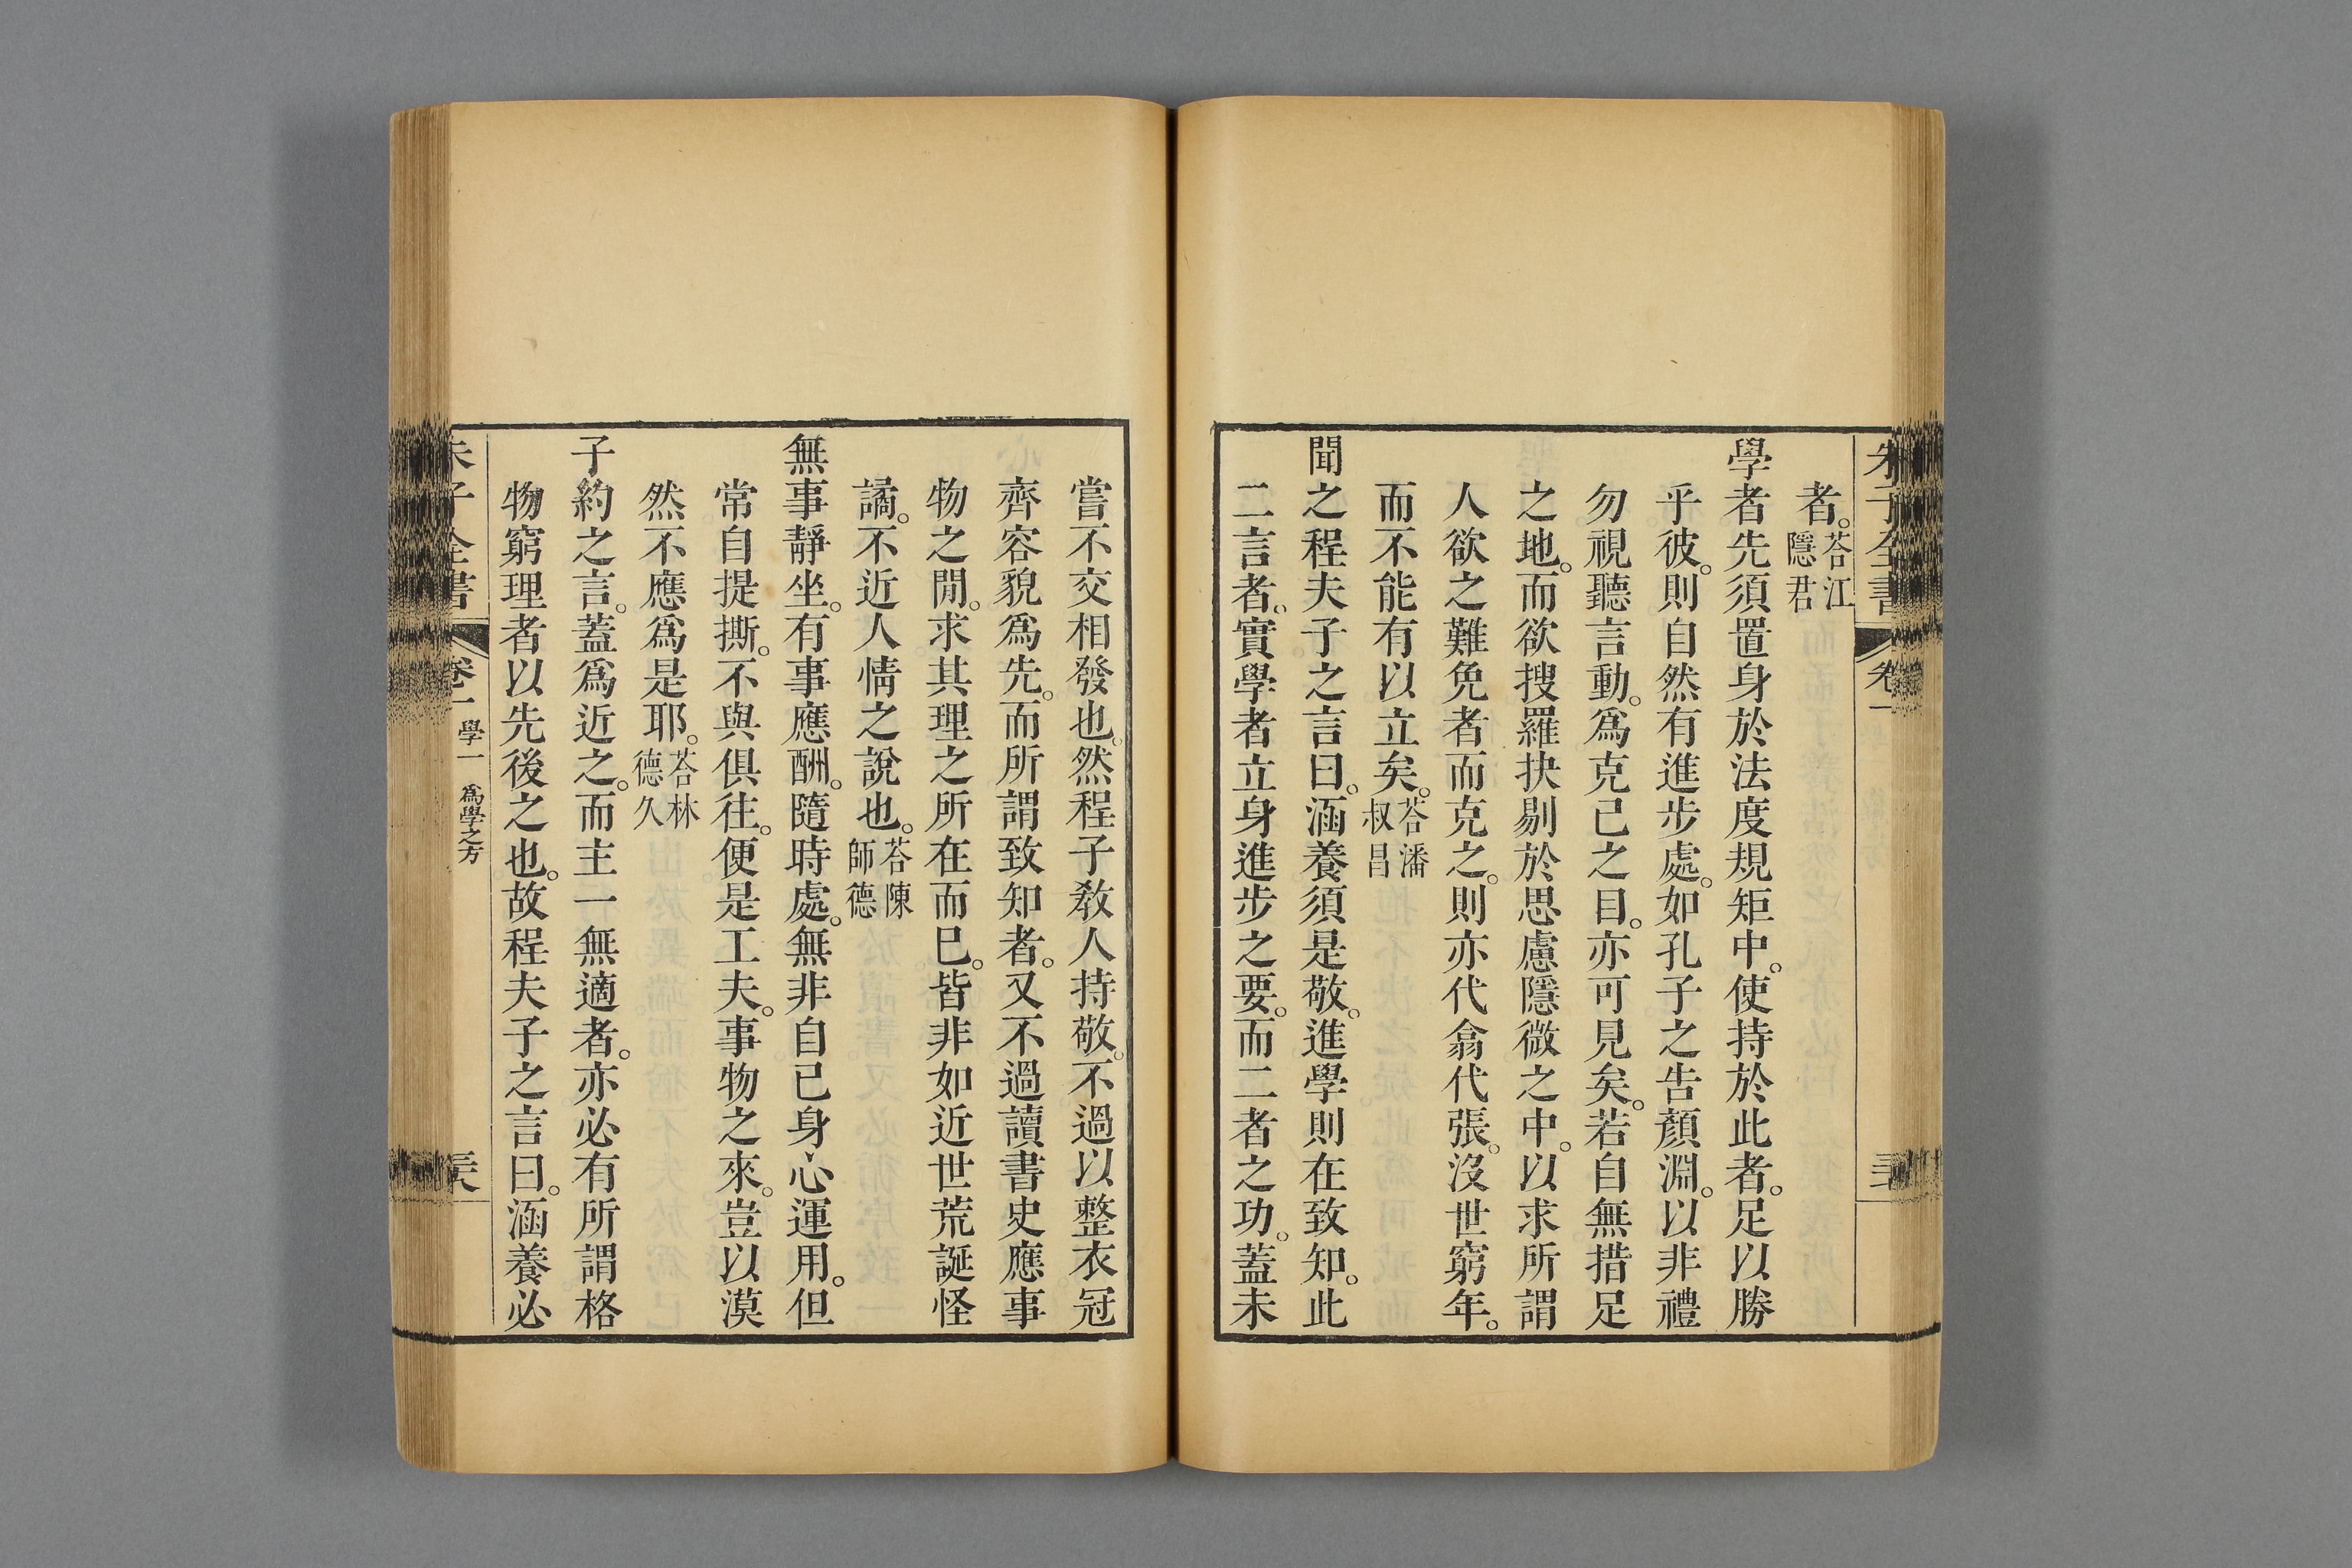 朱子全書 卷一
者。荅江隱君
學者先須置身於法度規矩中。使持於此者。足以勝
乎彼。則自然有進步處。如孔子之告顏淵。以非禮
勿視聽言動。爲克己之目。亦可見矣。若自無措足
之地。而欲搜羅抉剔於思慮隱微之中。以求所謂
人欲之難免者而克之。則亦代翕代張。沒世窮年。
而不能有以立矣。荅潘叔昌
聞之程夫子之言曰。涵養須是敬。進學則在致知。此
二言者。實學者立身進步之要。而二者之功。蓋未
嘗不交相發也。然程子敎人持敬。不過以整衣冠
齊容貌爲先。而所謂致知者。又不過讀書史應事
物之閒。求其理之所在而已。皆非如近世荒誕怪
譎。不近人情之說也。荅陳師德
無事靜坐。有事應酬。隨時處。無非自己身心運用。但
常自提撕。不與俱往。便是工夫。事物之來。豈以漠
然不應爲是耶。荅林德久
子約之言。蓋爲近之。而主一無適者。亦必有所謂格
物窮理者以先後之也。故程夫子之言曰。涵養必
朱子全書 卷一 學一 爲學之方